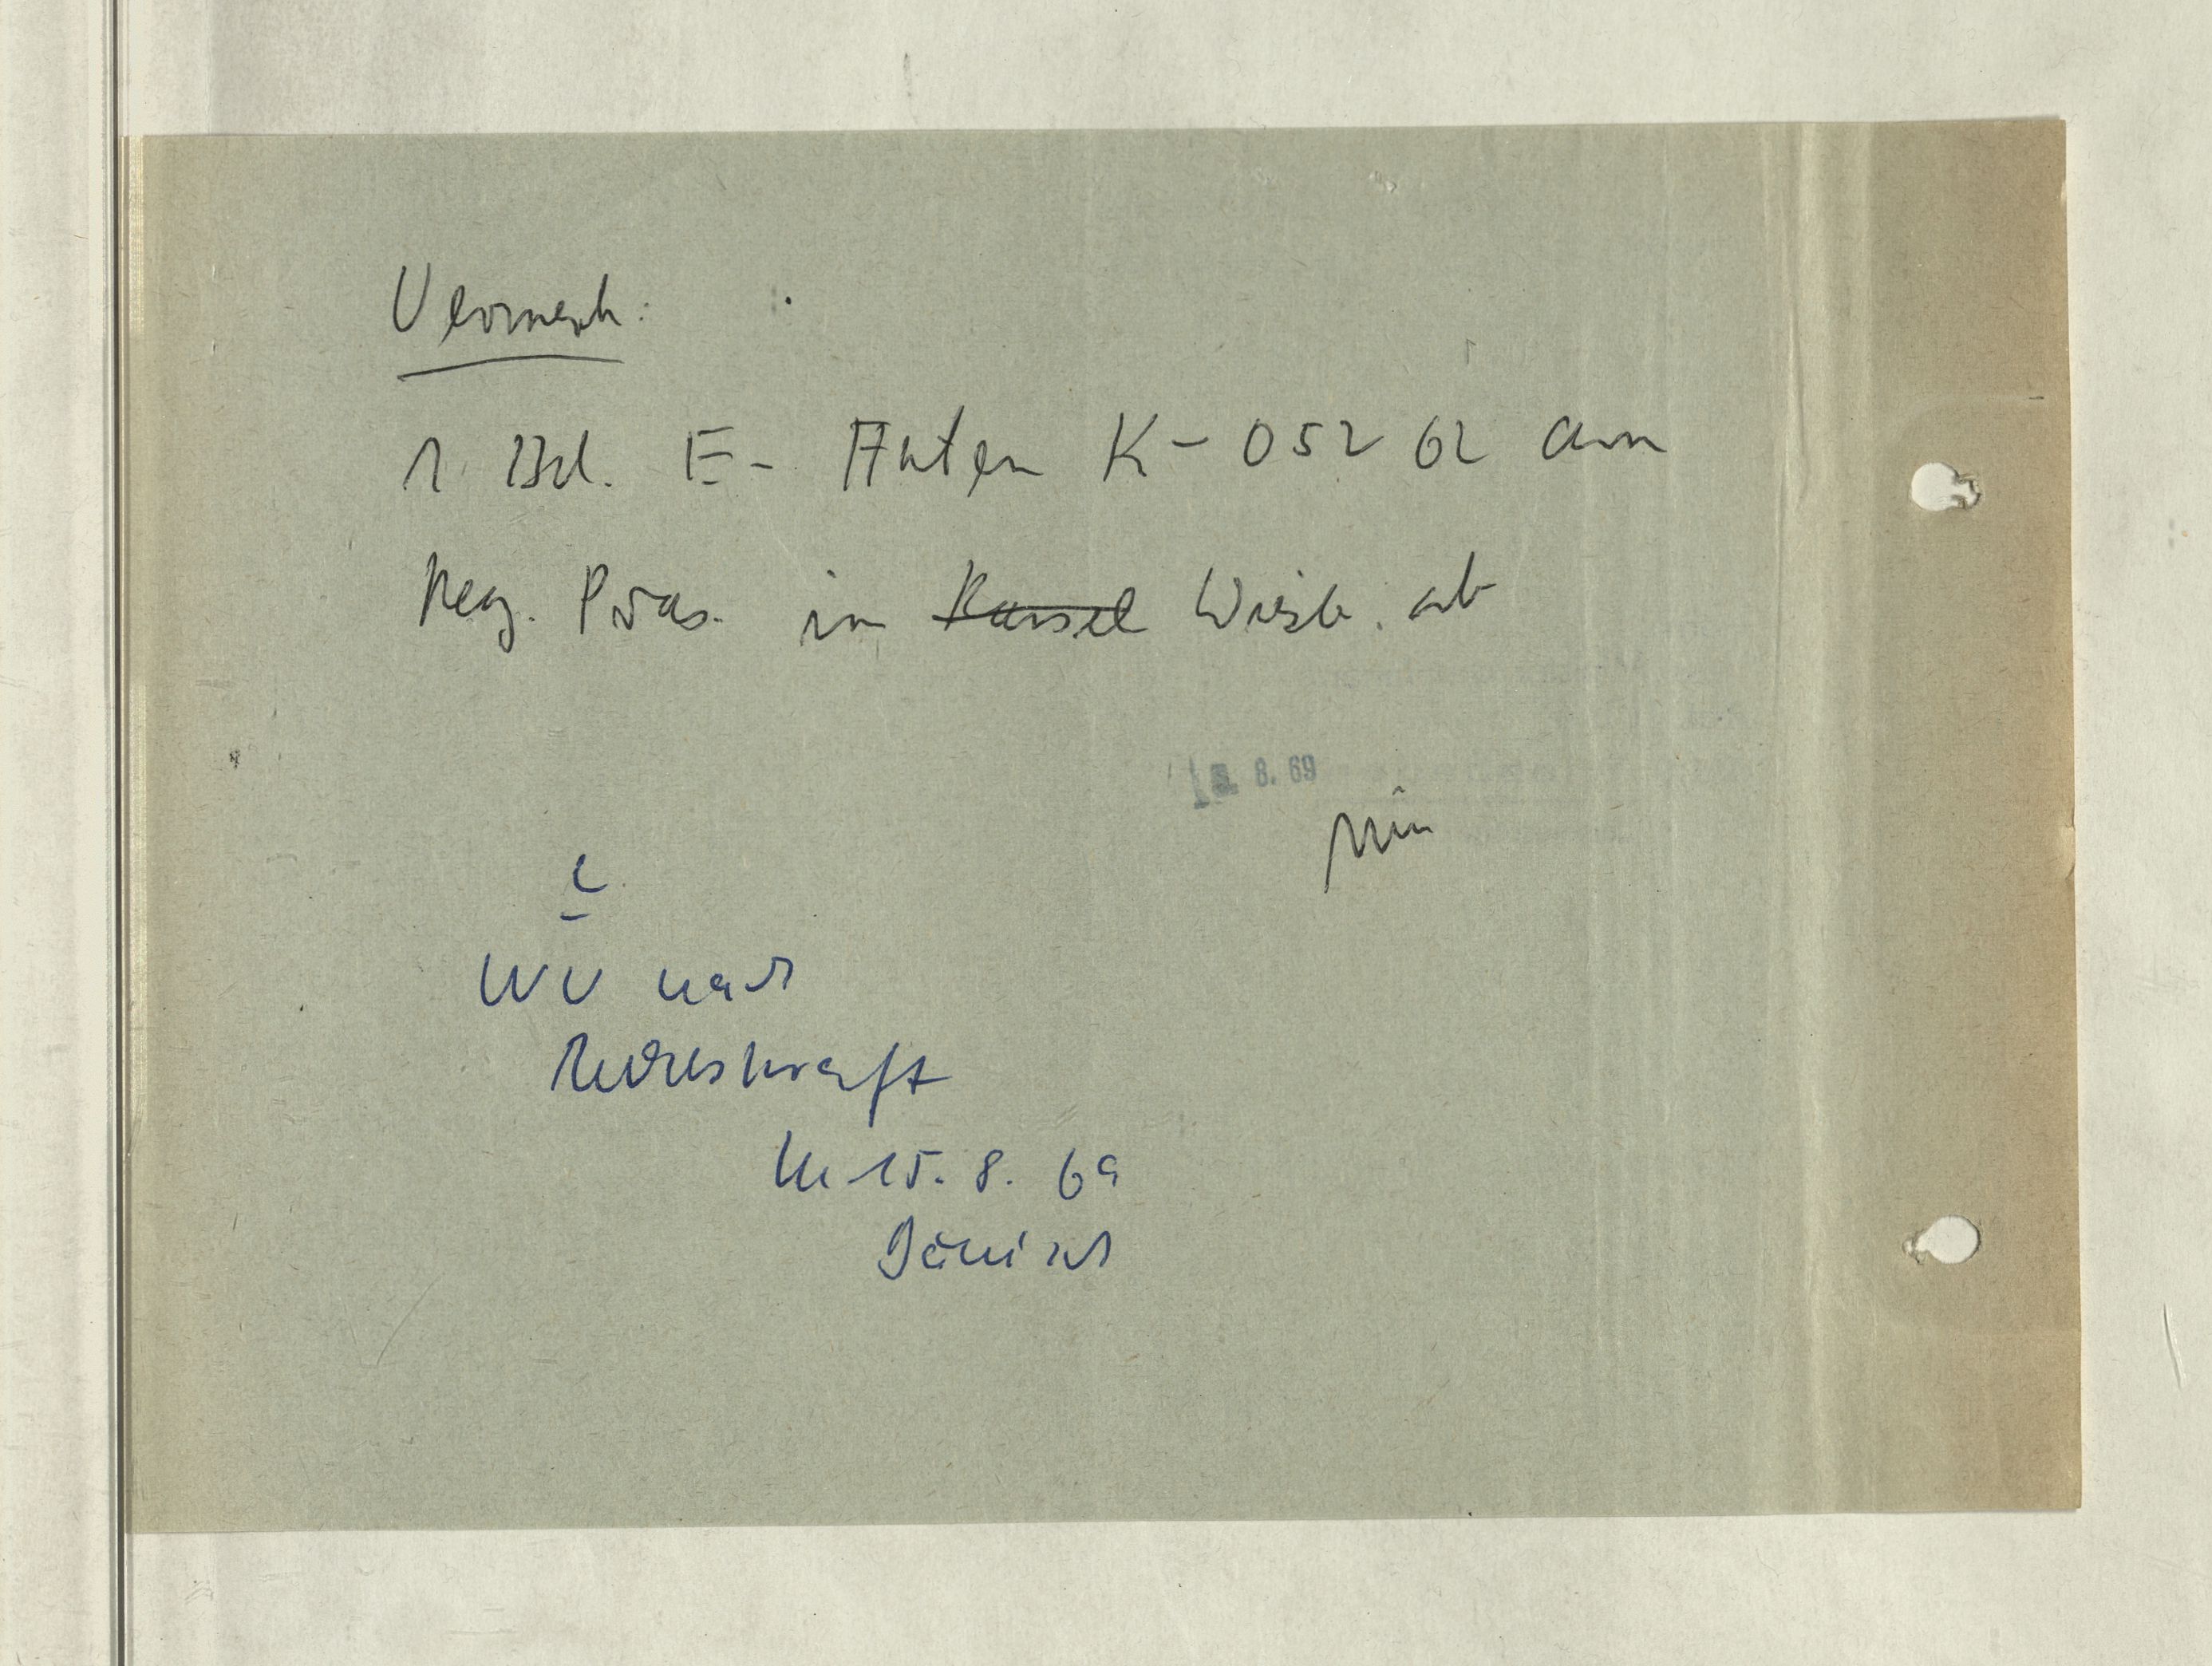 Vermerk:
1 Bd. E- Akten K-052 62 an
Reg. Präs. in Kassel Wiesb. ab
8. 69
WV nach
Rechtskraft
15. 8. 69